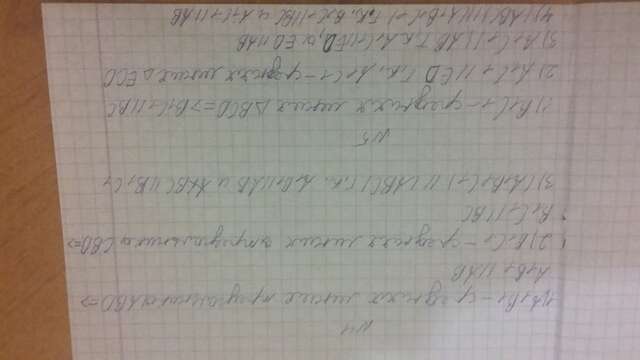 N4
1) A1B1 – средняя линия треугольника ABD =>
A1B1 || AB
2) B1C1 – средняя линия треугольника CBD =>
B1C1 || BC
3) (A1B1C1) || (ABC) т.к. A1B1 || AB и BC || B1C1
N5
1) B1C1 – средняя линия △BCD => B1C1 || BC
2) A1C1 || ED т.к. A1C1 – средняя линия △ECD
3) A1C1 || AB т.к. A1C1 || ED, а ED || AB
4) (ABC) || (A1B1C1) т.к. B1C1 || BC и A1C1 || AB